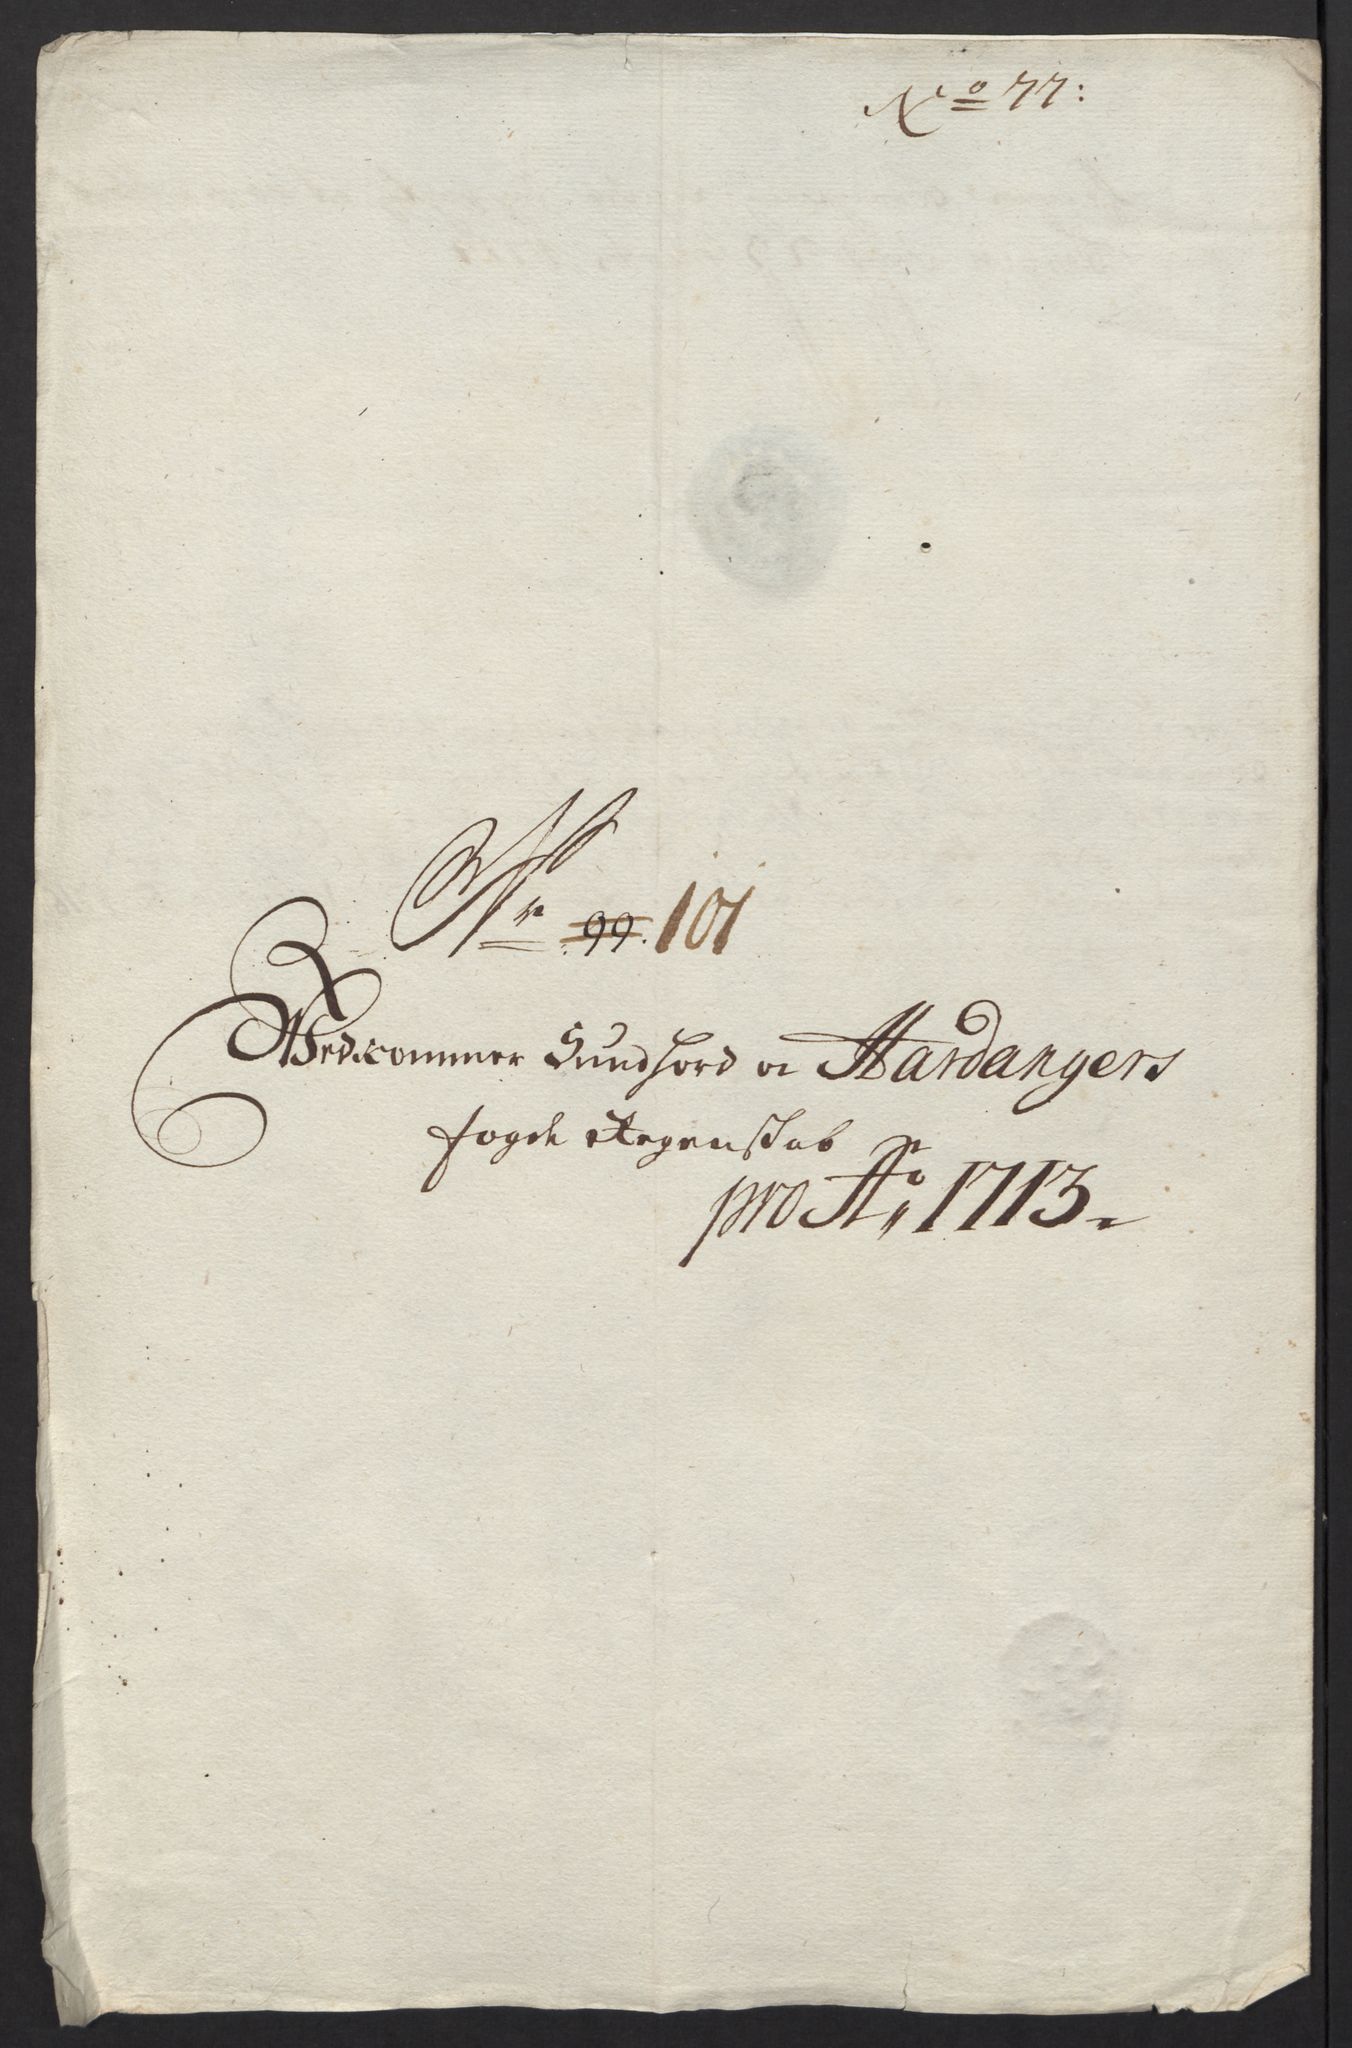 No 77:
Nr 99. 101
Wedkommer Sundhord oc Hardangers
fogde Regenskab
pro Ao 1713